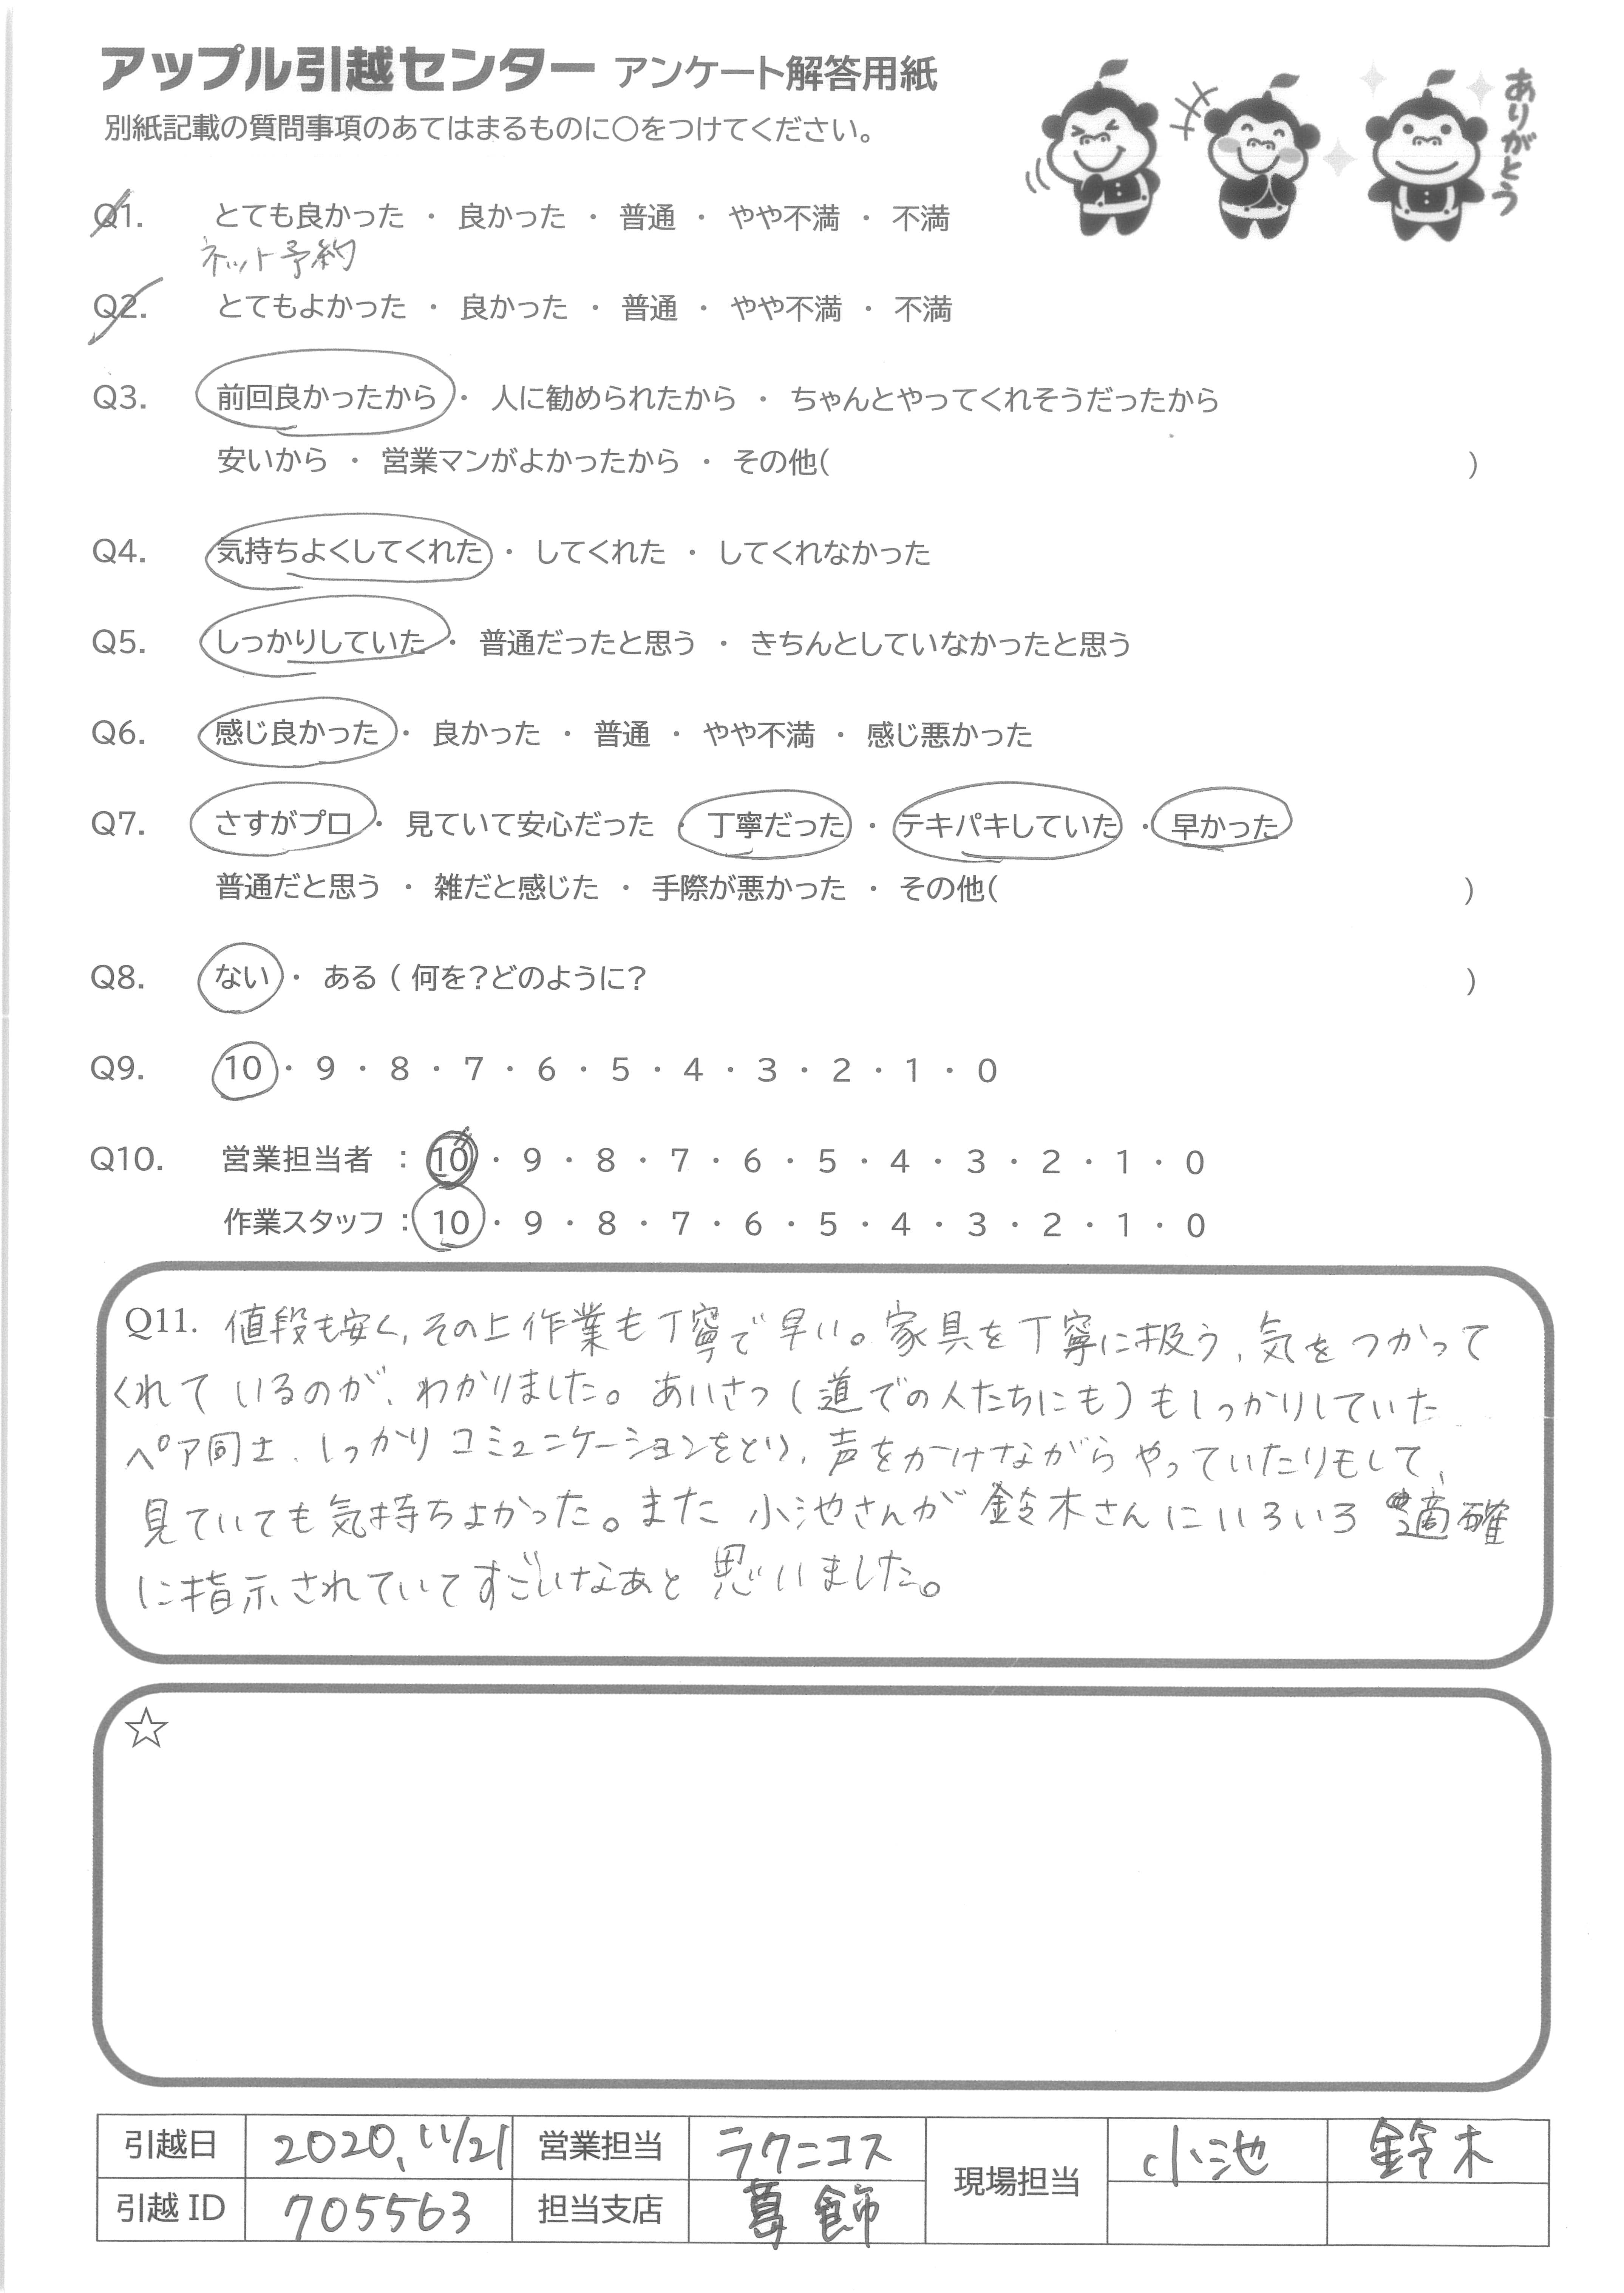 アップル引越センター アンケート解答用紙
別紙記載の質問事項のあてはまるものに○をつけてください。
ありがとう
Q1. とても良かった ・ 良かった ・ 普通 ・ やや不満 ・ 不満
ネット予約
Q2. とてもよかった ・ 良かった ・ 普通 ・ やや不満 ・ 不満
Q3. 前回良かったから ・ 人に勧められたから ・ ちゃんとやってくれそうだったから
安いから ・ 営業マンがよかったから ・ その他( )
Q4. 気持ちよくしてくれた ・ してくれた ・ してくれなかった
Q5. しっかりしていた ・ 普通だったと思う ・ きちんとしていなかったと思う
Q6. 感じ良かった ・ 良かった ・ 普通 ・ やや不満 ・ 感じ悪かった
Q7. さすがプロ ・ 見ていて安心だった ・ 丁寧だった ・ テキパキしていた ・ 早かった
普通だと思う ・ 雑だと感じた ・ 手際が悪かった ・ その他( )
Q8. ない ・ ある ( 何を?どのように? )
Q9. 10 ・ 9 ・ 8 ・ 7 ・ 6 ・ 5 ・ 4 ・ 3 ・ 2 ・ 1 ・ 0
Q10. 営業担当者 : 10 ・ 9 ・ 8 ・ 7 ・ 6 ・ 5 ・ 4 ・ 3 ・ 2 ・ 1 ・ 0
作業スタッフ : 10 ・ 9 ・ 8 ・ 7 ・ 6 ・ 5 ・ 4 ・ 3 ・ 2 ・ 1 ・ 0
Q11. 値段も安く、その上作業も丁寧で早い。家具を丁寧に扱う、気をつかって
くれているのが、わかりました。あいさつ(道での人たちにも)もしっかりしていた
ペア同士、しっかりコミュニケーションをとり、声をかけながらやっていたりもして、
見ていても気持ちよかった。また 小池さんが 鈴木さんにいろいろ 適確
に指示されていてすごいなぁと 思いました。
☆
引越日 2020.11/21 営業担当 ラクニコス 現場担当 小池 鈴木
引越 ID 705563 担当支店 葛飾